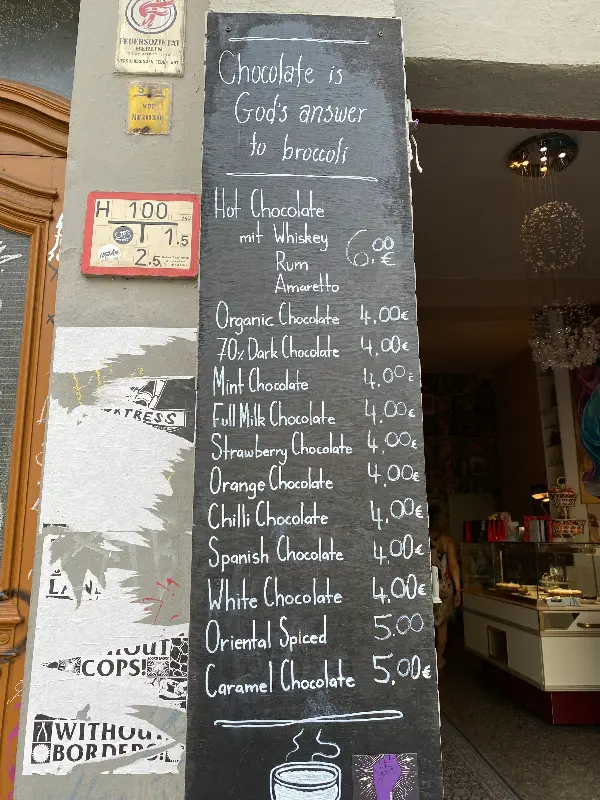 FEUERSOZIETÄT
BERLIN
H 100
1.5
2.5
Chocolate is
God's answer
to broccoli
Hot Chocolate
mit Whiskey 6.00€
Rum
Amaretto
Organic Chocolate 4,00€
70% Dark Chocolate 4,00€
Mint Chocolate 4,00€
Full Milk Chocolate 4,00€
Strawberry Chocolate 4,00€
Orange Chocolate 4,00€
Chilli Chocolate 4,00€
Spanish Chocolate 4,00€
White Chocolate 4,00€
Oriental Spiced 5.00
Caramel Chocolate 5,00€
COPS!
WITHOUT
BORDERS